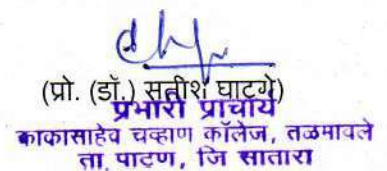 (प्रो. (डॉ.) सतीश घाटगे)
प्रभारी प्राचार्य
काकासाहेब चव्हाण कॉलेज, तळमावले
ता. पाटण, जि सातारा